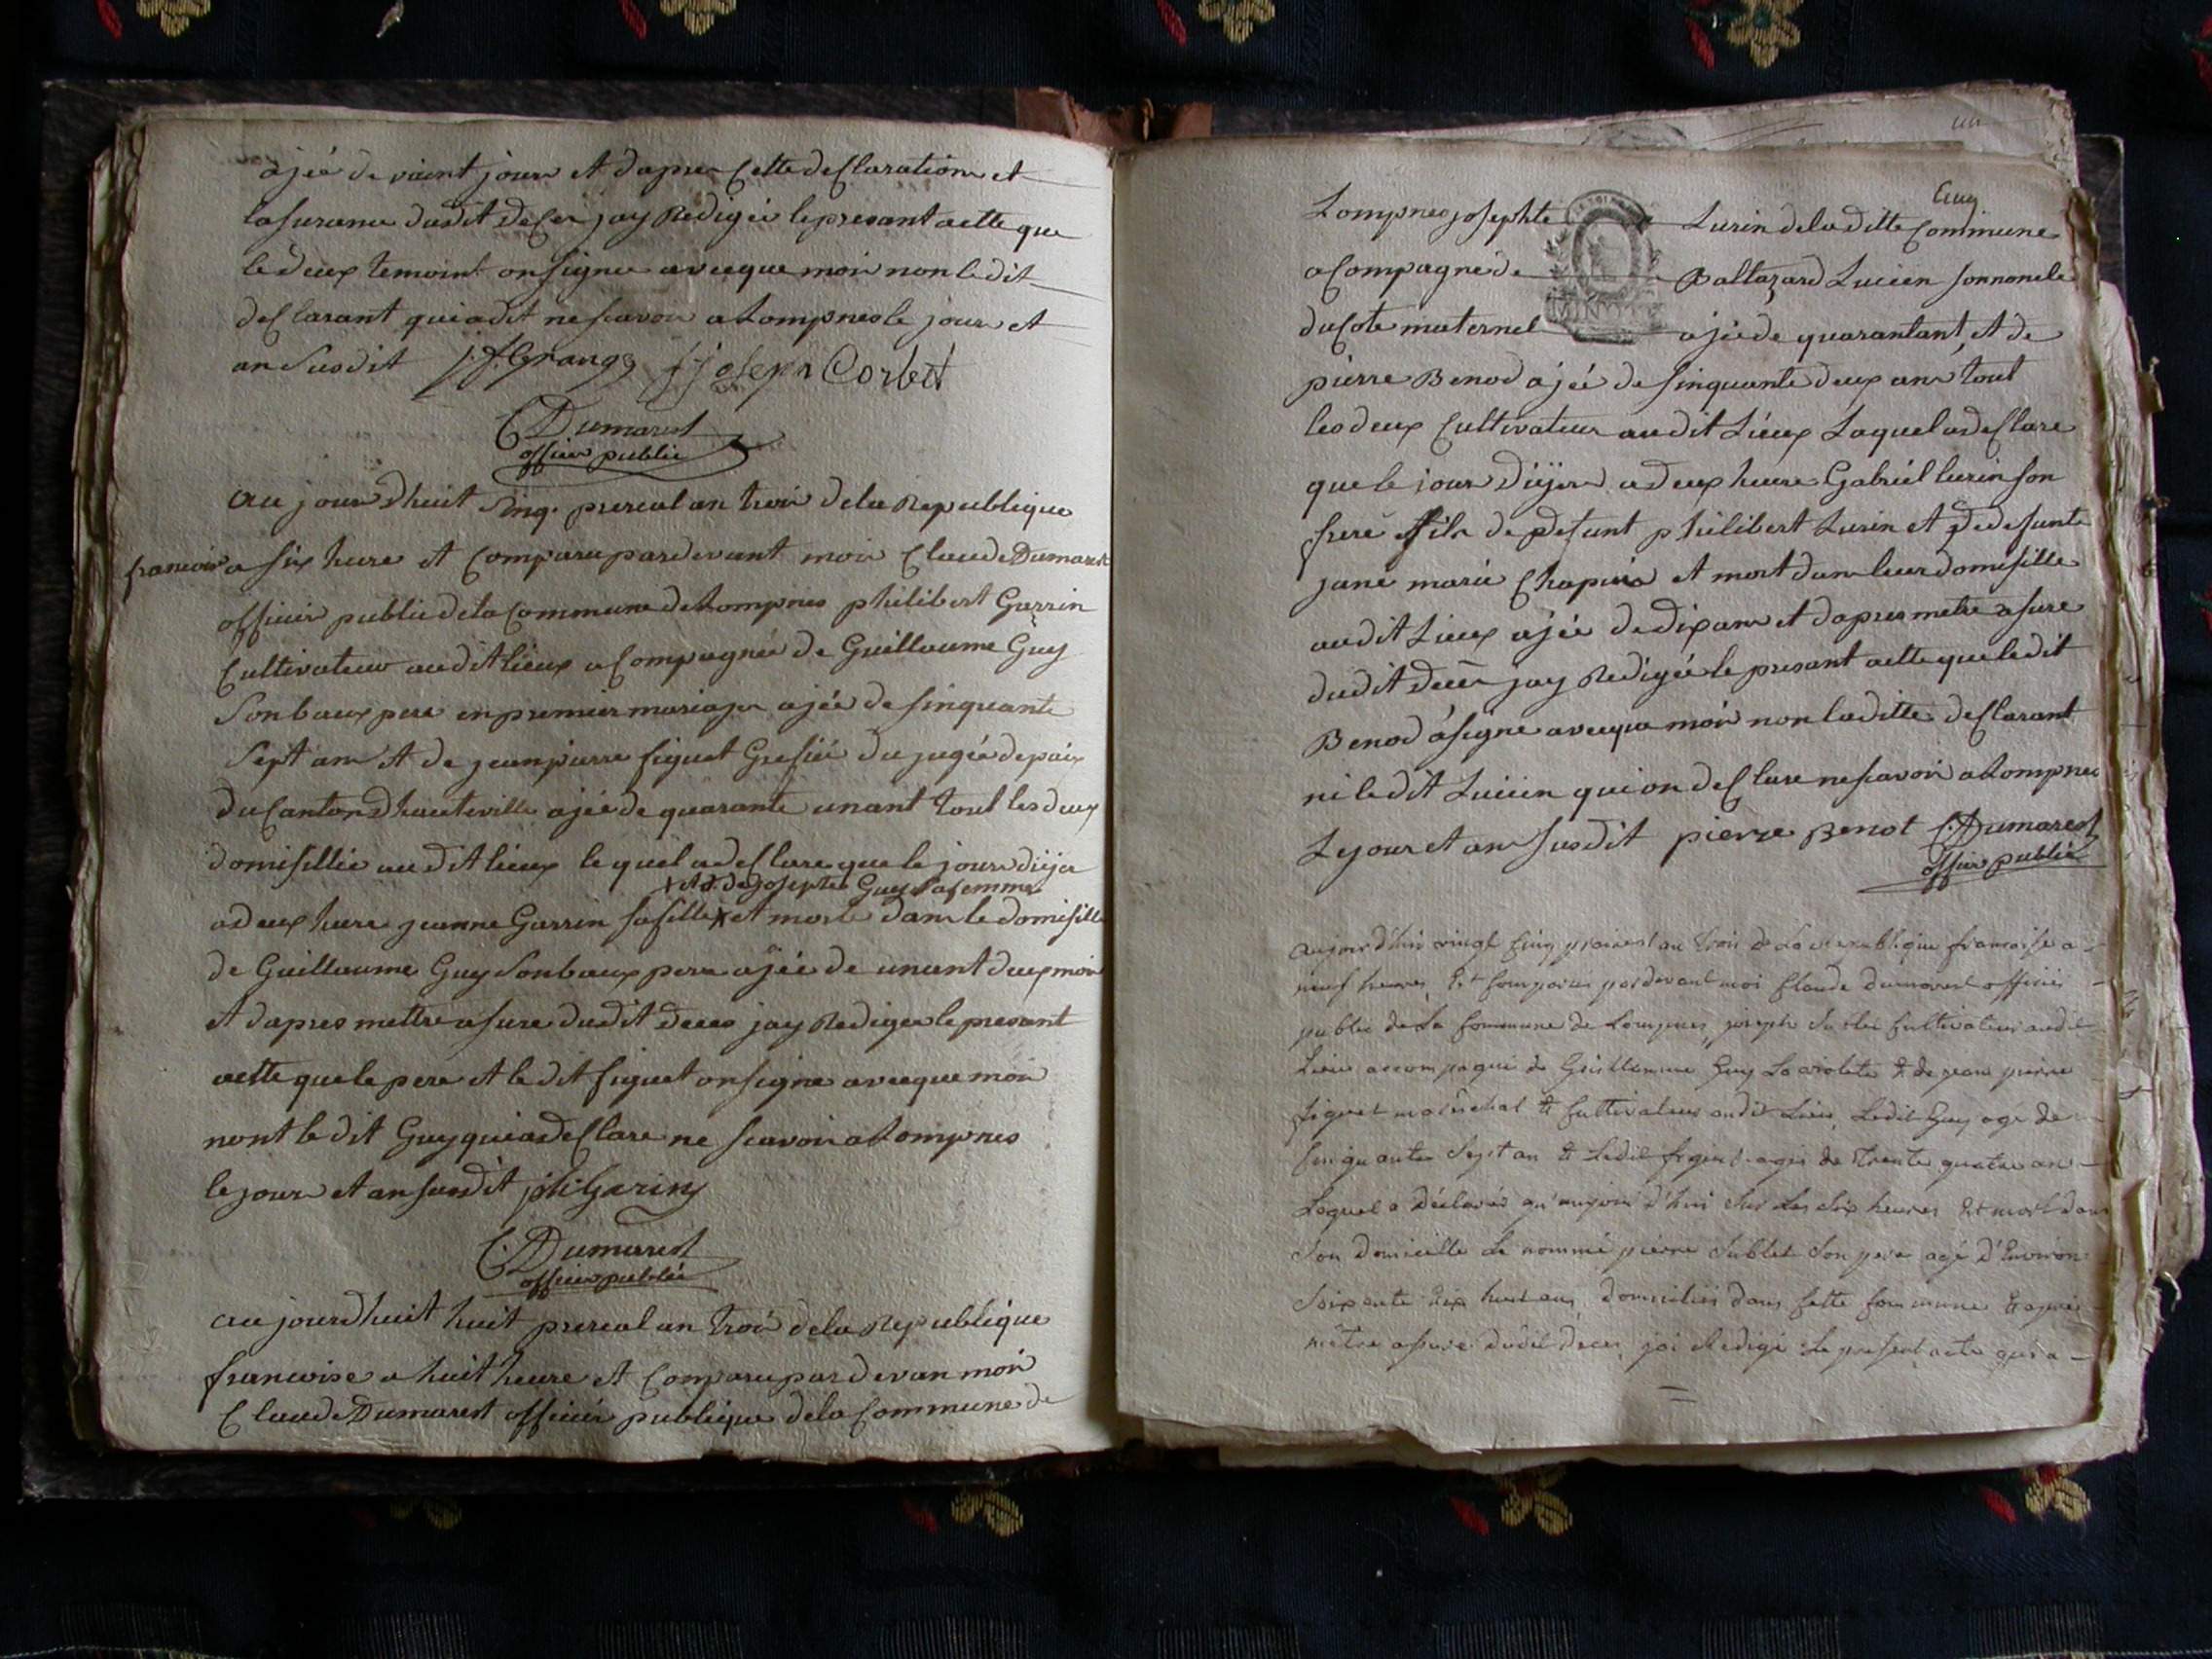 ajée de vaint jour et dapre Cette deClaration et
lasurance dudit deCer jay Redigée le presant actte que
le deux temoint on signer avecque moir non le dit
deClarant qui a dit ne scavoir a Lompnes le jour et
an Susdit J. f. Grangy f joseph Corbet
C. Dumarest
officier public
au jour dhuit Sinq. prereal an troir dela Republique
francoise a six heure et Comparu pardevant moir Claude Dumarest
officier public de la Commune de Lompnes philibert Garrin
Cultivateur audit lieux a Compagnée de Guillaume Guy
Son baux pere en premier mariage ajée de sinquante
Sept anr et de jeanpierre figuet Grefiée du jugée de paix
du Canton dhauteville ajée de quarante un ant tout les deux
domisillie audit lieux le quel a deClare que le jour dijer
+ et de Josephte Guy sa femme
a deux heure jeanne Garrin sa fille + et morte dans le domisille
de Guillaume Guy Son baux pere ajée de un ant deux moir
et dapres mettre asure dudit deces jay Rediger le presant
actte que le pere et le dit figuet on signe avecque moir
nont le dit Guy qui a deClare ne scavoir a Lompnes
le jour et an susdit ph. Garin
C. Dumarest
officier public
au jour dhuit huit prereal an troir dela Republique
francoise a huit heure et Comparu par devan moir
Claude Dumarest officier publique dela Commune de
Cinq
Lompnes josephte Lurin dela ditte Commune
a Compagné de Baltazard Lucien son noncle
du Cote maternel ajée de quarantant, et de
MINUTE
pierre Benod ajée de sinquante deux anr tout
les deux Cultivateur audit Lieux Laquel a deClare
que le jour dijer a deux heure Gabriel lurin son
frere fils de defunt philibert Lurin et de defunte
jane marie Chapuis et mort dans leur domisille
audit Lieux ajée de dix anr et dapres metre asure
dudit decer jay Redigée le presant actte que le dit
Benod a signe avecque moir non la ditte deClarant
ni le dit Lucien qui on deClare ne scavoir a Lompnes
Le jour et an susdit pierre Benot C. Dumarest
officier public
aujourd'hui vingt cinq prairial an trois de La republique francoise a
neuf heures Est Comparu pardevant moi Claude dumarest officier
public de La Commune de Lompnes, joseph Sublet Cultivateur audit
Lieu accompagné de Guillaume Guy La violete & de jean pierre
figuet maréchal & Cultivateur audit Lieu, Ledit Guy agé de
Cinquante Sept an & Ledit figuet agé de trente quatre an
Lequel a déclaré qu'aujourd'hui Sur Les Six heures Est mort dans
Son domicille Le nommé pierre Sublet Son pere agé d'Environ
Soixante dix huit ans, domicilié dans Cette Commune & apres
mêtre assuré dudit décès, jai Redigé Le present acte qui a